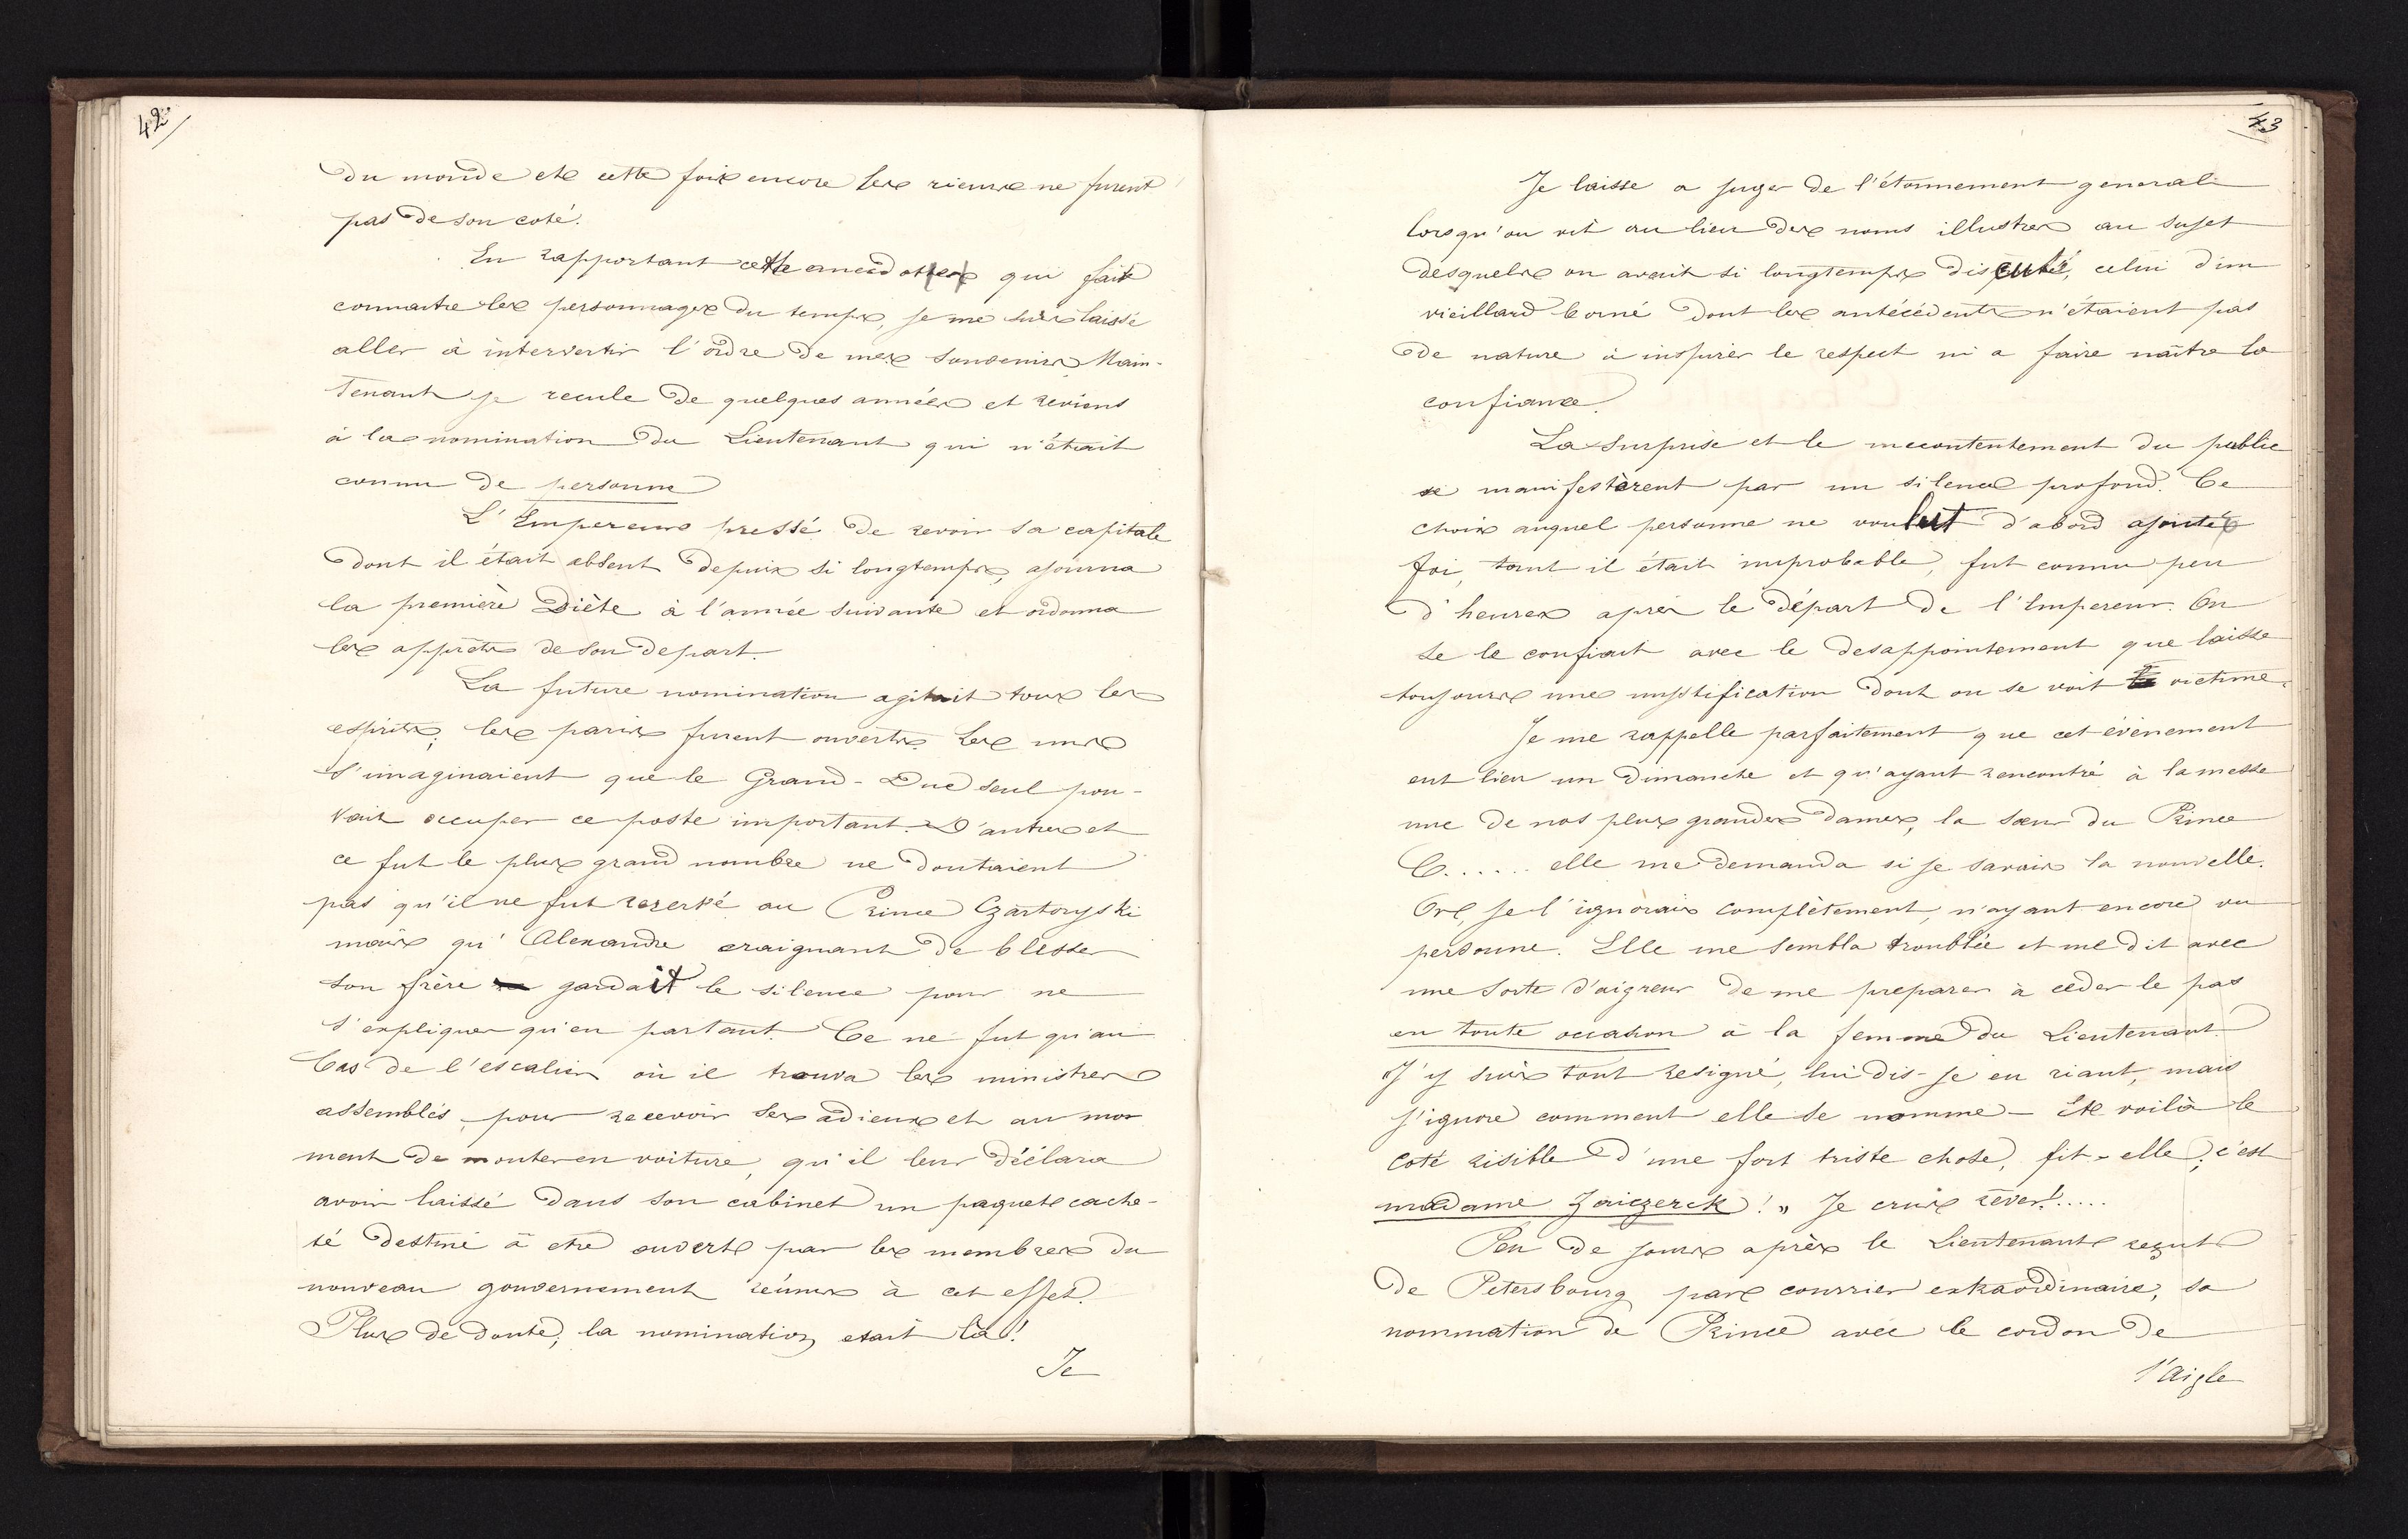 42
du monde et cette fois encore les rieurs ne furent
pas de son coté.
En rapportant cette anecdote qui fait
connaitre les personnages du temps, je me suis laissé
aller à intervertir l'ordre de mes souvenirs. Main-
tenant je recule de quelques années et reviens
à la nomination du Lieutenant qui n'était
connu de personne
L'Empereur pressé de revoir sa capitale
dont il était absent depuis si longtemps, ajourna
la première Diète à l'année suivante et ordonna
les apprêts de son depart.
La future nomination agitait tous les
esprits; les paris furent ouverts. Les uns
s'imaginaient que le Grand-Duc seul pou-
vait occuper ce poste important. D'autres et
ce fut le plus grand nombre ne doutaient
pas qu'il ne fut reservé au Prince Czartoryski
mais qu'Alexandre craignant de blesser
son frère gardait le silence pour ne
s'expliquer qu'en partant. Ce ne fut qu'au
bas de l'escalier où il trouva les ministres
assemblés pour recevoir ses adieux et au mo-
ment de monter en voiture, qu'il leur déclara
avoir laissé dans son cabinet un paquet cache-
té destiné à etre ouvert par les membres du
nouveau gouvernement réunis à cet effet.
Plus de doute; la nomination etait là!
Je
43
Je laisse a juger de l'étonnement general
lorsqu'on vit au lieu des noms illustres au sujet
desquels on avait si longtemps discuté, celui d'un
vieillard borné dont les antécédents n'étaient pas
de nature à inspirer le respect ni a faire naître la
confiance.
La surprise et le mecontentement du public
se manifestèrent par un silence profond. Ce
choix auquel personne ne voulut d'abord ajouter
foi, tant il était improbable, fut connu peu
d'heures après le départ de l'Empereur. On
se le confiait avec le desappointement que laisse
toujours une mystification dont on se voit la victime.
Je me rappelle parfaitement que cet évènement
eut lieu un Dimanche et qu'ayant rencontré à la messe
une de nos plus grandes dames, la sœur du Prince
C...... elle me demanda si je savais la nouvelle.
Or, je l'ignorais complètement, n'ayant encore vu
personne. Elle me sembla troublée et me dit avec
une sorte d'aigreur de me preparer à céder le pas
en toute occasion à la femme du Lieutenant.
J'y suis tout resigné, lui dis-je en riant, mais
j'ignore comment elle se nomme - Et voilà le
coté risible d'une fort triste chose, fit-elle; c'est
madame Zaiczerck!" Je crus rêver!.....
Peu de jours après le Lieutenant reçut
de Petersbourg par courrier extraordinaire, sa
nommation de Prince avec le cordon de
l'Aigle